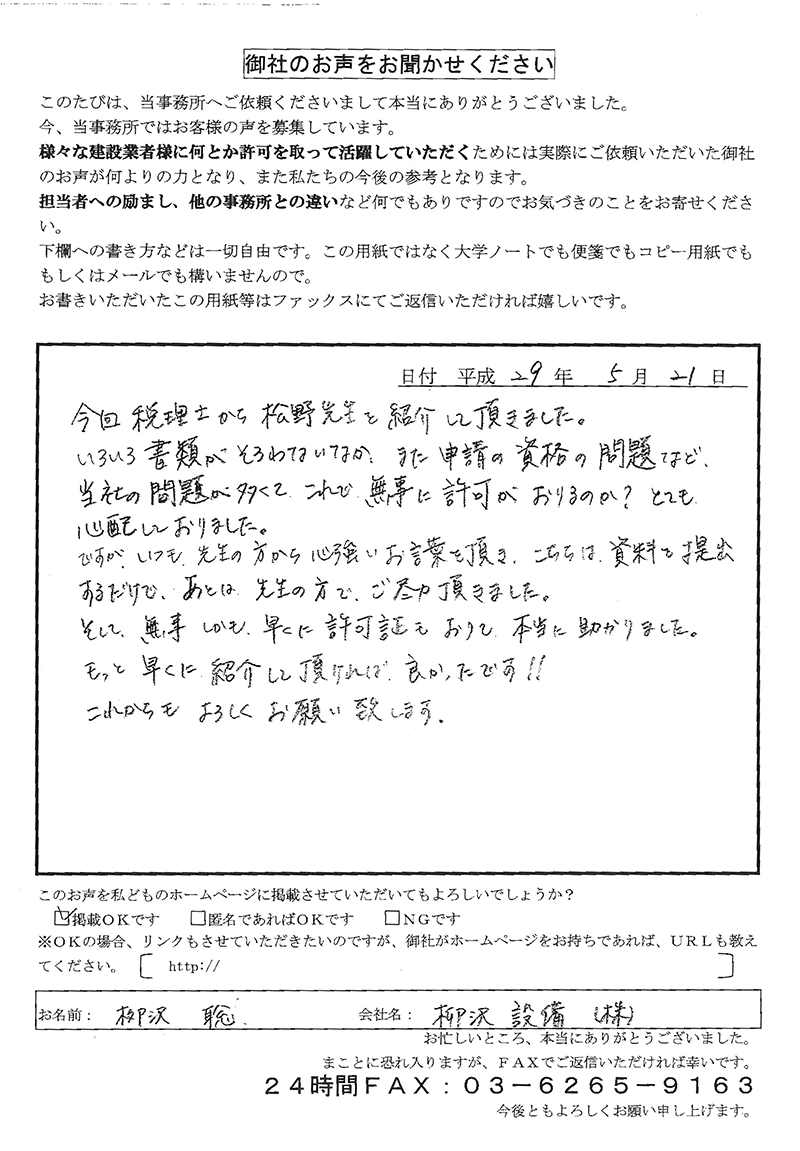 御社のお声をお聞かせください
このたびは、当事務所へご依頼くださいまして本当にありがとうございました。
今、当事務所ではお客様の声を募集しています。
様々な建設業者様に何とか許可を取って活躍していただくためには実際にご依頼いただいた御社
のお声が何よりの力となり、また私たちの今後の参考となります。
担当者への励まし、他の事務所との違いなど何でもありですのでお気づきのことをお寄せくださ
い。
下欄への書き方などは一切自由です。この用紙ではなく大学ノートでも便箋でもコピー用紙でも
もしくはメールでも構いませんので。
お書きいただいたこの用紙等はファックスにてご返信いただければ嬉しいです。
日付 平成 29 年 5 月 21 日
今回 税理士から 松野先生を 紹介して頂きました。
いろいろ 書類が そろわないなか、また 申請の 資格の 問題など、
当社の 問題が多くて、これで、無事に 許可が おりるのか? とても
心配しておりました。
ですが、いつも、先生の方から 心強い お言葉を頂き、こちらは、資料を提出
するだけで、あとは、先生の方で、ご尽力 頂きました。
そして、無事 しかも、早くに 許可証も おりて、本当に 助かりました。
もっと 早くに 紹介して 頂ければ、良かったです!!
これからも よろしく お願い 致します。
このお声を私どものホームページに掲載させていただいてもよろしいでしょうか?
☑掲載OKです □匿名であればOKです □NGです
※OKの場合、リンクもさせていただきたいのですが、御社がホームページをお持ちであれば、URLも教え
てください。[ http:// ]
お名前: 柳沢 聡 会社名: 柳沢 設備 (株)
お忙しいところ、本当にありがとうございました。
まことに恐れ入りますが、FAXでご返信いただければ幸いです。
24時間FAX:03-6265-9163
今後ともよろしくお願い申し上げます。